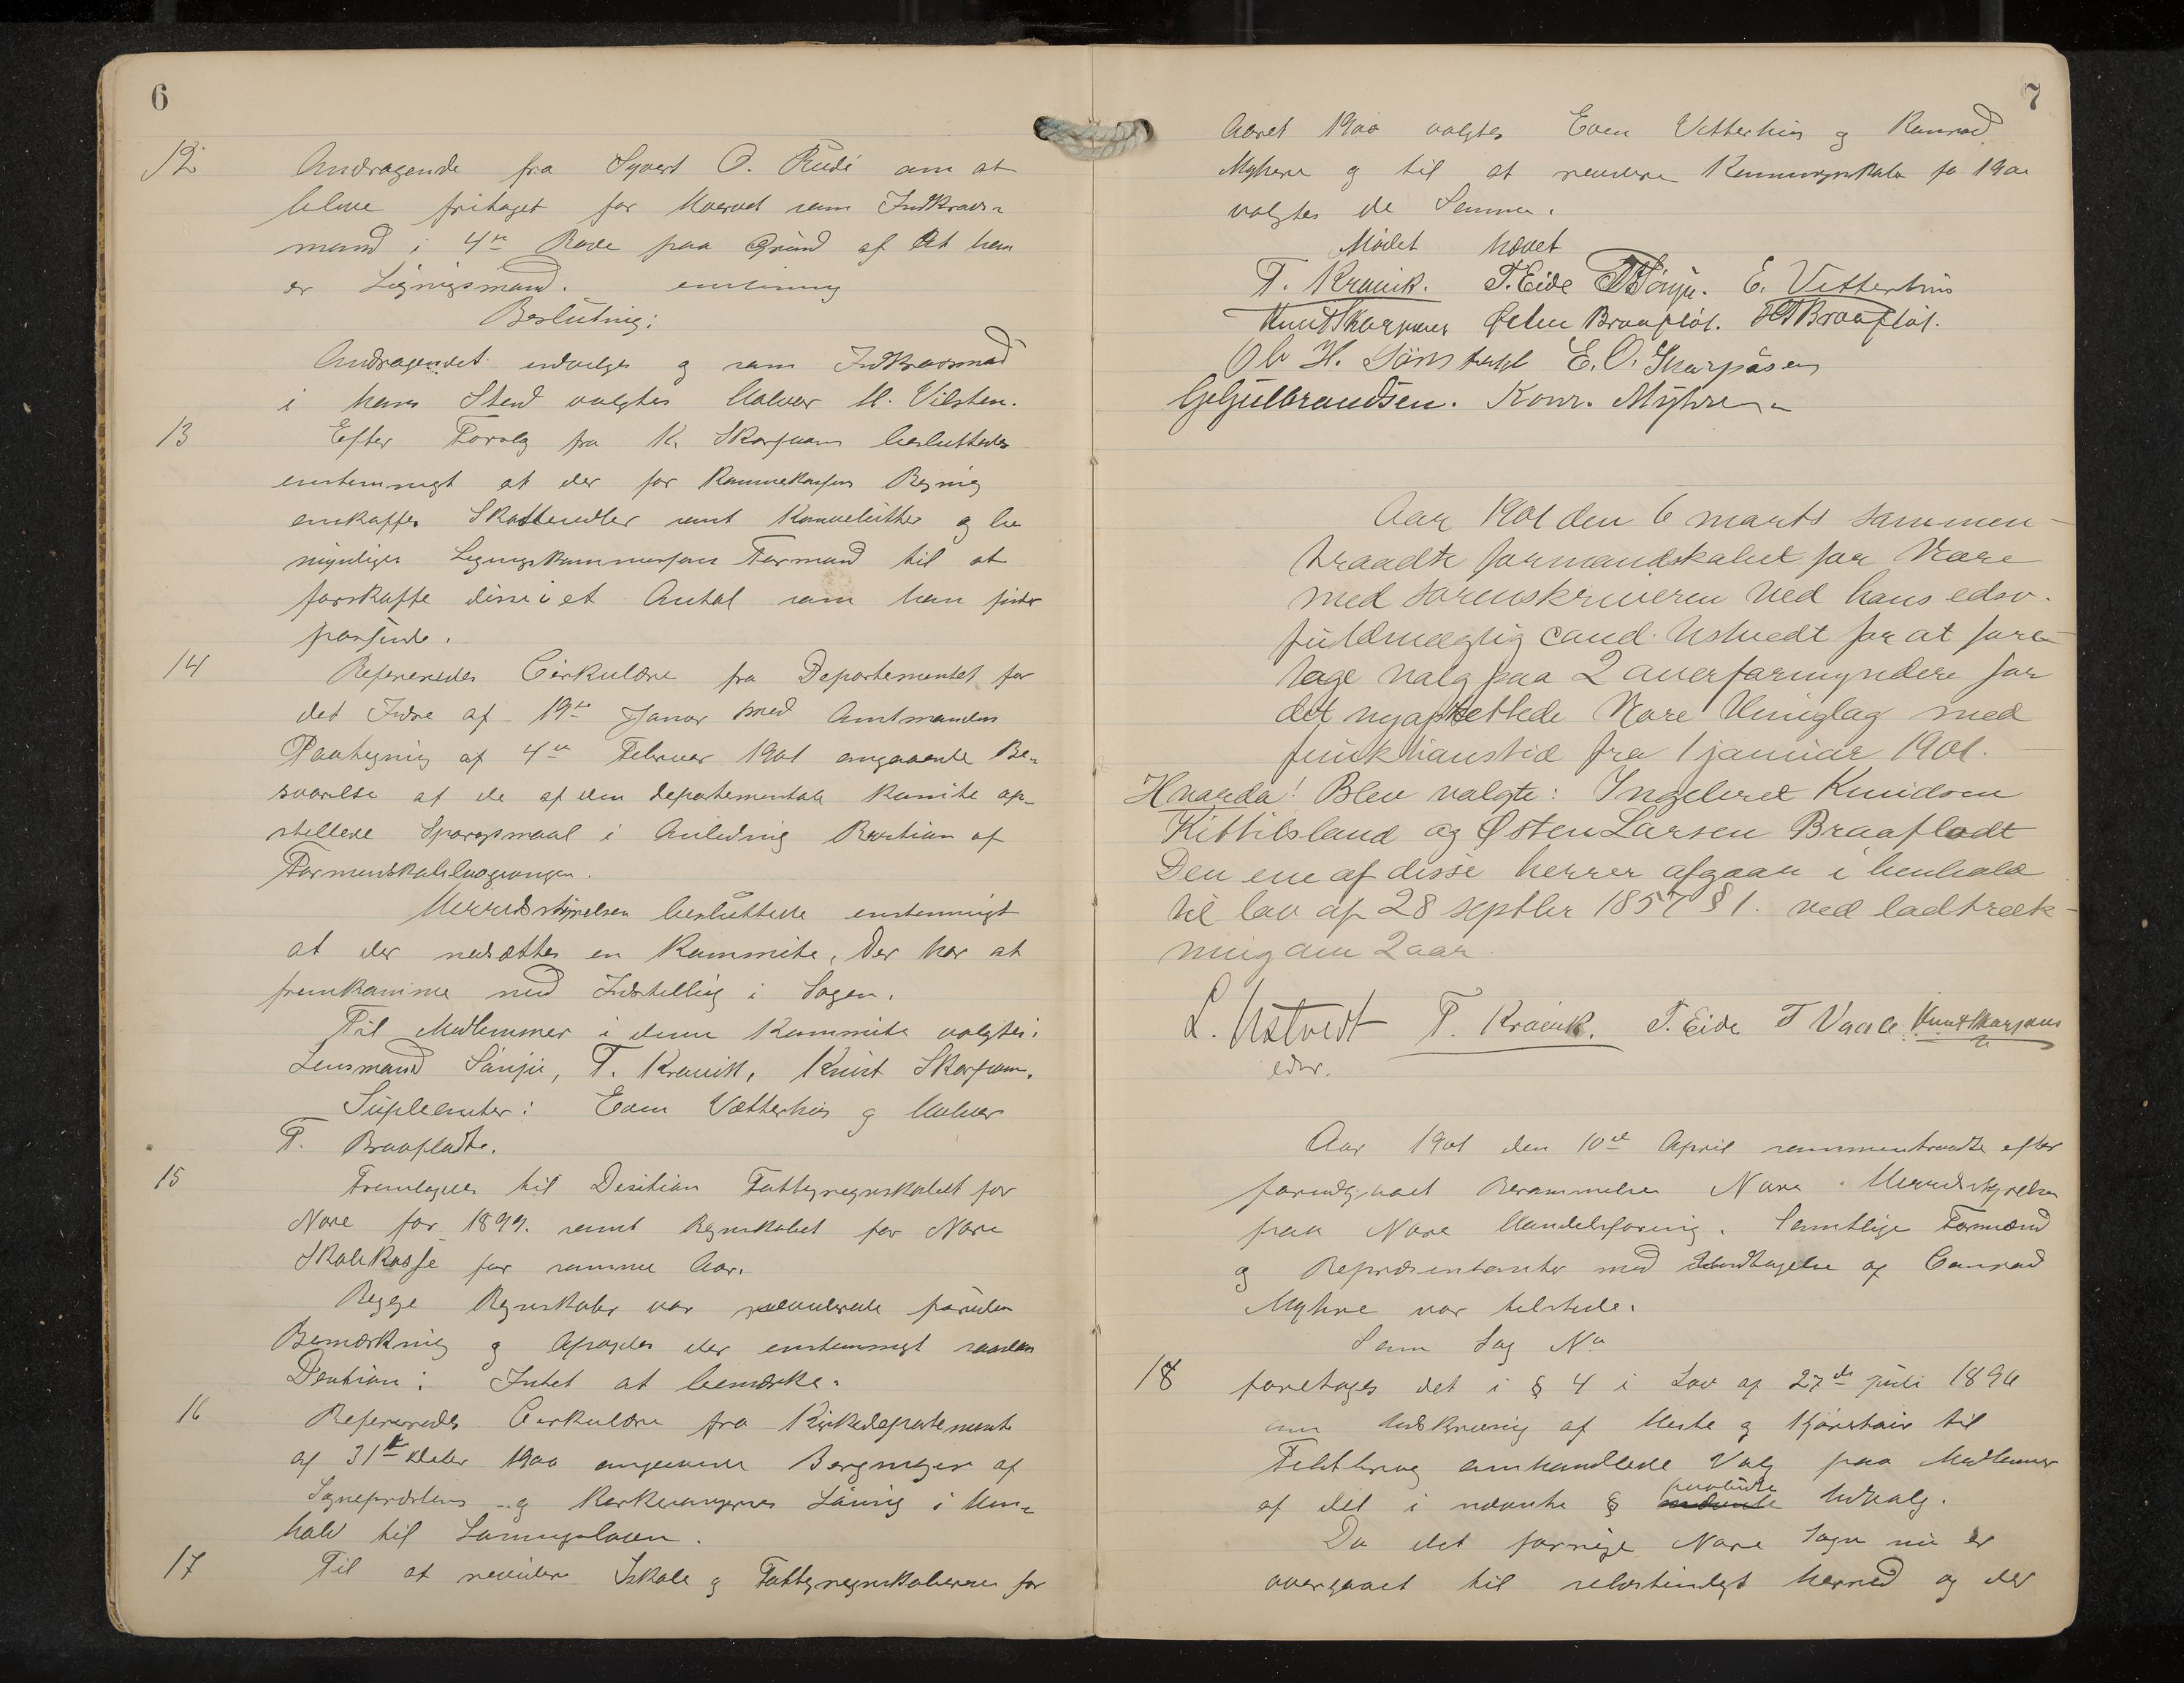 6
12 Andragende fra Syvert O. Rudi om at
blive fritaget for Hvervet som Indkrævs-
mand i 4de Rode paa Grund af At han
er Ligningsmand.
Beslutning:
Andragendet indvilges og som Indkrævsmand
i hans Sted valgtes Halvor H. Vilsten.
13 Efter Forslag fra K. Skarpaas besluttedes
enstemmigt at der for Kommunekassens Regning
anskaffes Skattesedler samt Konvelutter og be
myndiges Ligningskommissionens Formand til at
forskaffe disse i et Antal som han finder
passende.
14 Refereredes Cirkulære fra Departementet for
det Indre af 19de Januar med Amtmandens
Paategning af 4de Februar 1901 angaaende Be-
svarelse af de af den departementale Komite op-
stillede Spørgsmaal i Anledning Revision af
Formandskabslovgivningen.
Herredsstyrelsen besluttede enstemmigt
at der nedsættes en Kommite, der har at
fremkomme med Indstilling i Sagen.
Til Medlemmer i denne Kommite valgtes:
Lensmand Sønju, T. Kravik, Knut Skarpaas.
Supleanter: Even Vetterhus og Halvor
T. Braafladt.
15 Fremlagdes til Desition Fattigregnskabet for
Nore for 1899. samt Regnskabet for Nore
Skolekasse for samme Aar.
Begge Regnskaber var reviderede foruden
Bemærkning og Afsagdes der enstemmigt saadan
Desition: Intet at bemærke.
16 Refereredes Cirkulære fra Kirkedepartementet
af 31te Debr 1900 angaaende Beregningen af
Sognepræstens og Kirkesangernes Lønning i Hen-
hold til Lønningsloven.
17 Til at revidere Skole og Fattigregnskaberne for
7
Aaret 1900 valgtes Even Vetterhus og Konrad
Myhre og til at revidere Kommuneregnskabet for 1900
valgtes de Samme.
Mødet hævet
T. Kravik. T. Eide TB Sönju. E. Vetterhus
Knut Skarpaas Østen Braaflat. HT Braaflat.
Ole H. Söns E. O. Skarpåsen
G. Gulbrandsen. Konr. Myhre
Aar 1901 den 6 marts sammen-
traadte formandskabet for Nore
med sorenskriveren ved hans edsv.
fuldmægtig cand. Ustvedt for at fore-
tage valg paa 2 overformyndere for
det nyoprettede Nore thinglag med
funktionstid fra 1 januar 1901.
Hvorda! Blev valgte: Ingebret Knudsen
Kittilsland og Østen Larsen Braaflodt
Den ene af disse herrer afgaar i henhold
til lov af 28 septbr 1857 § 1. ved lodtræk-
ning om 2 aar
L. Ustvedt T. Kravik. T. Eide T Vaale Knut Skarpaas
edsv.
Aar 1901 den 10de April sammentraadte efter
forudgaaet Berammelse Nore Herredsstyrelse
paa Nore Handelsforening. Samtlige Formænd
og Repræsentanter med Undtagelse af Conrad
Myhre var tilstede.
Som Sag No
18 foretages det i § 4 i Lov af 27de juli 1896
om Udskrivning af Heste og Kjøretøier til
Feltbrug omhandlede Valg paa Medlemmer
af det i nævnte § paabudte Udvalg.
Da det forrige Nore Sogn nu er
overgaaet til selvstændigt Herred og der